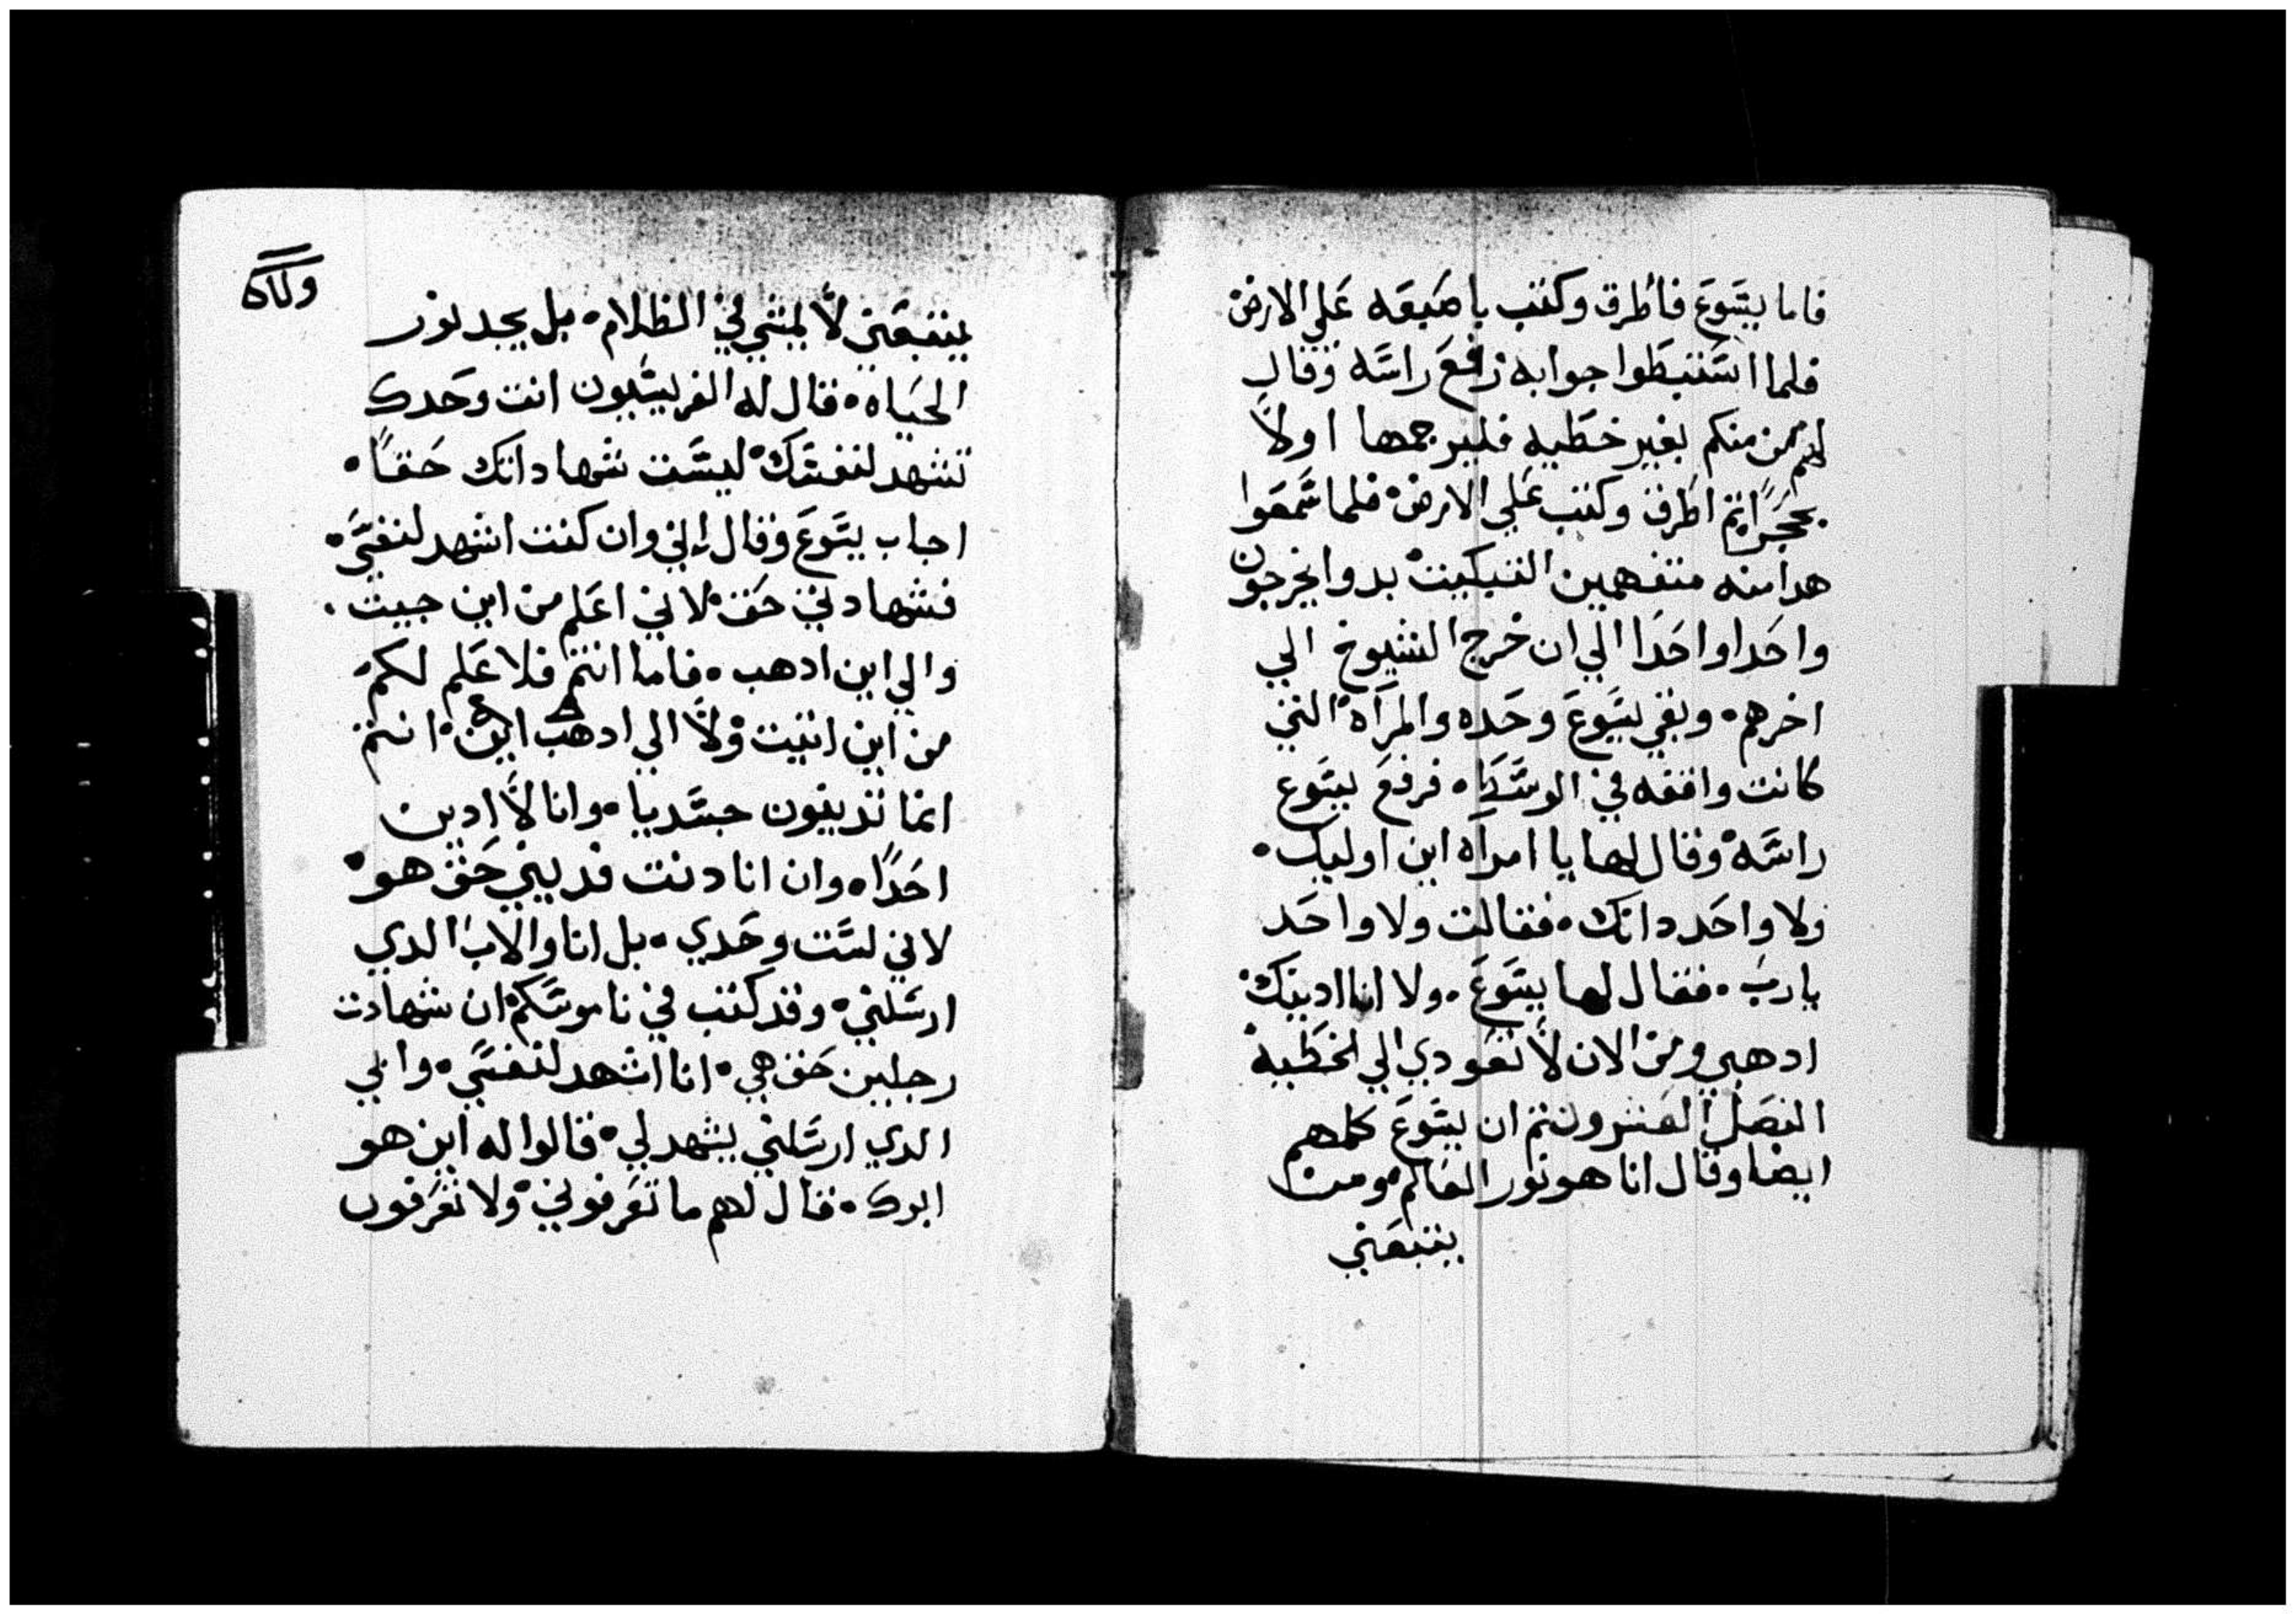 فاما يسوع فاطرق وكتب باصبعه علي الارض
فلما استبطوا جوابه رافع راسه وقال
لهم من منكم بغير خطيه فليرجمها اولا
بحجر ثم اطرق وكتب علي الارض فلما سمعوا
هدا منه متفهمين التبكيت بدوا يخرجون
واحدا واحدا الي ان خرج الشيوخ الي
اخرهم وبقي يسوع وحده والمراه التي
كانت واقفه في الوسط فرفع يسوع
راسه وقال لها يا امراه اين اوليك
ولا واحد دانك فقالت ولا واحد
يارب فقال لها يسوع ولا انا ادينك
ادهبي ومن الان لا تعودي الي الخطيه
الفصل العشرون ثم ان يسوع كلمهم
ايضا وقال انا هو نور العالم ومن
يتبعني
يتبعني لا يمشي في الظلام بل يجد نور
الحياه فقال له الفريسيون انت وحدك
تشهد لنفسك ليست شهاداتك حقا
اجاب يسوع وقال اني وان كنت اشهد لنفسي
فشهادتي حق لاني اعلم من اين جيت
والي اين ادهب فاما انتم فلا علم لكم
من اين اتيت ولا الي ادهب اين انتم
انما تدينون جسديا وانا لا ادين
احدا وان انا دنت فديني حق هو
لاني لست وحدي بل انا والاب الدي
ارسلني وقد كتب في ناموسكم ان شهادت
رجلين حق هي انا اشهد لنفسي وابي
الدي ارسلني يشهد لي قالوا له اين هو
ابوك فقال لهم ما تعرفوني ولا تعرفون